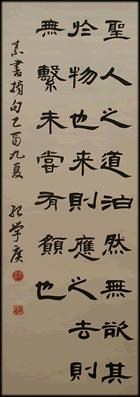 聖人之道泊然無欲其
於物也来則應之去則
無繫未嘗有也
素書摘句乙酉九夏